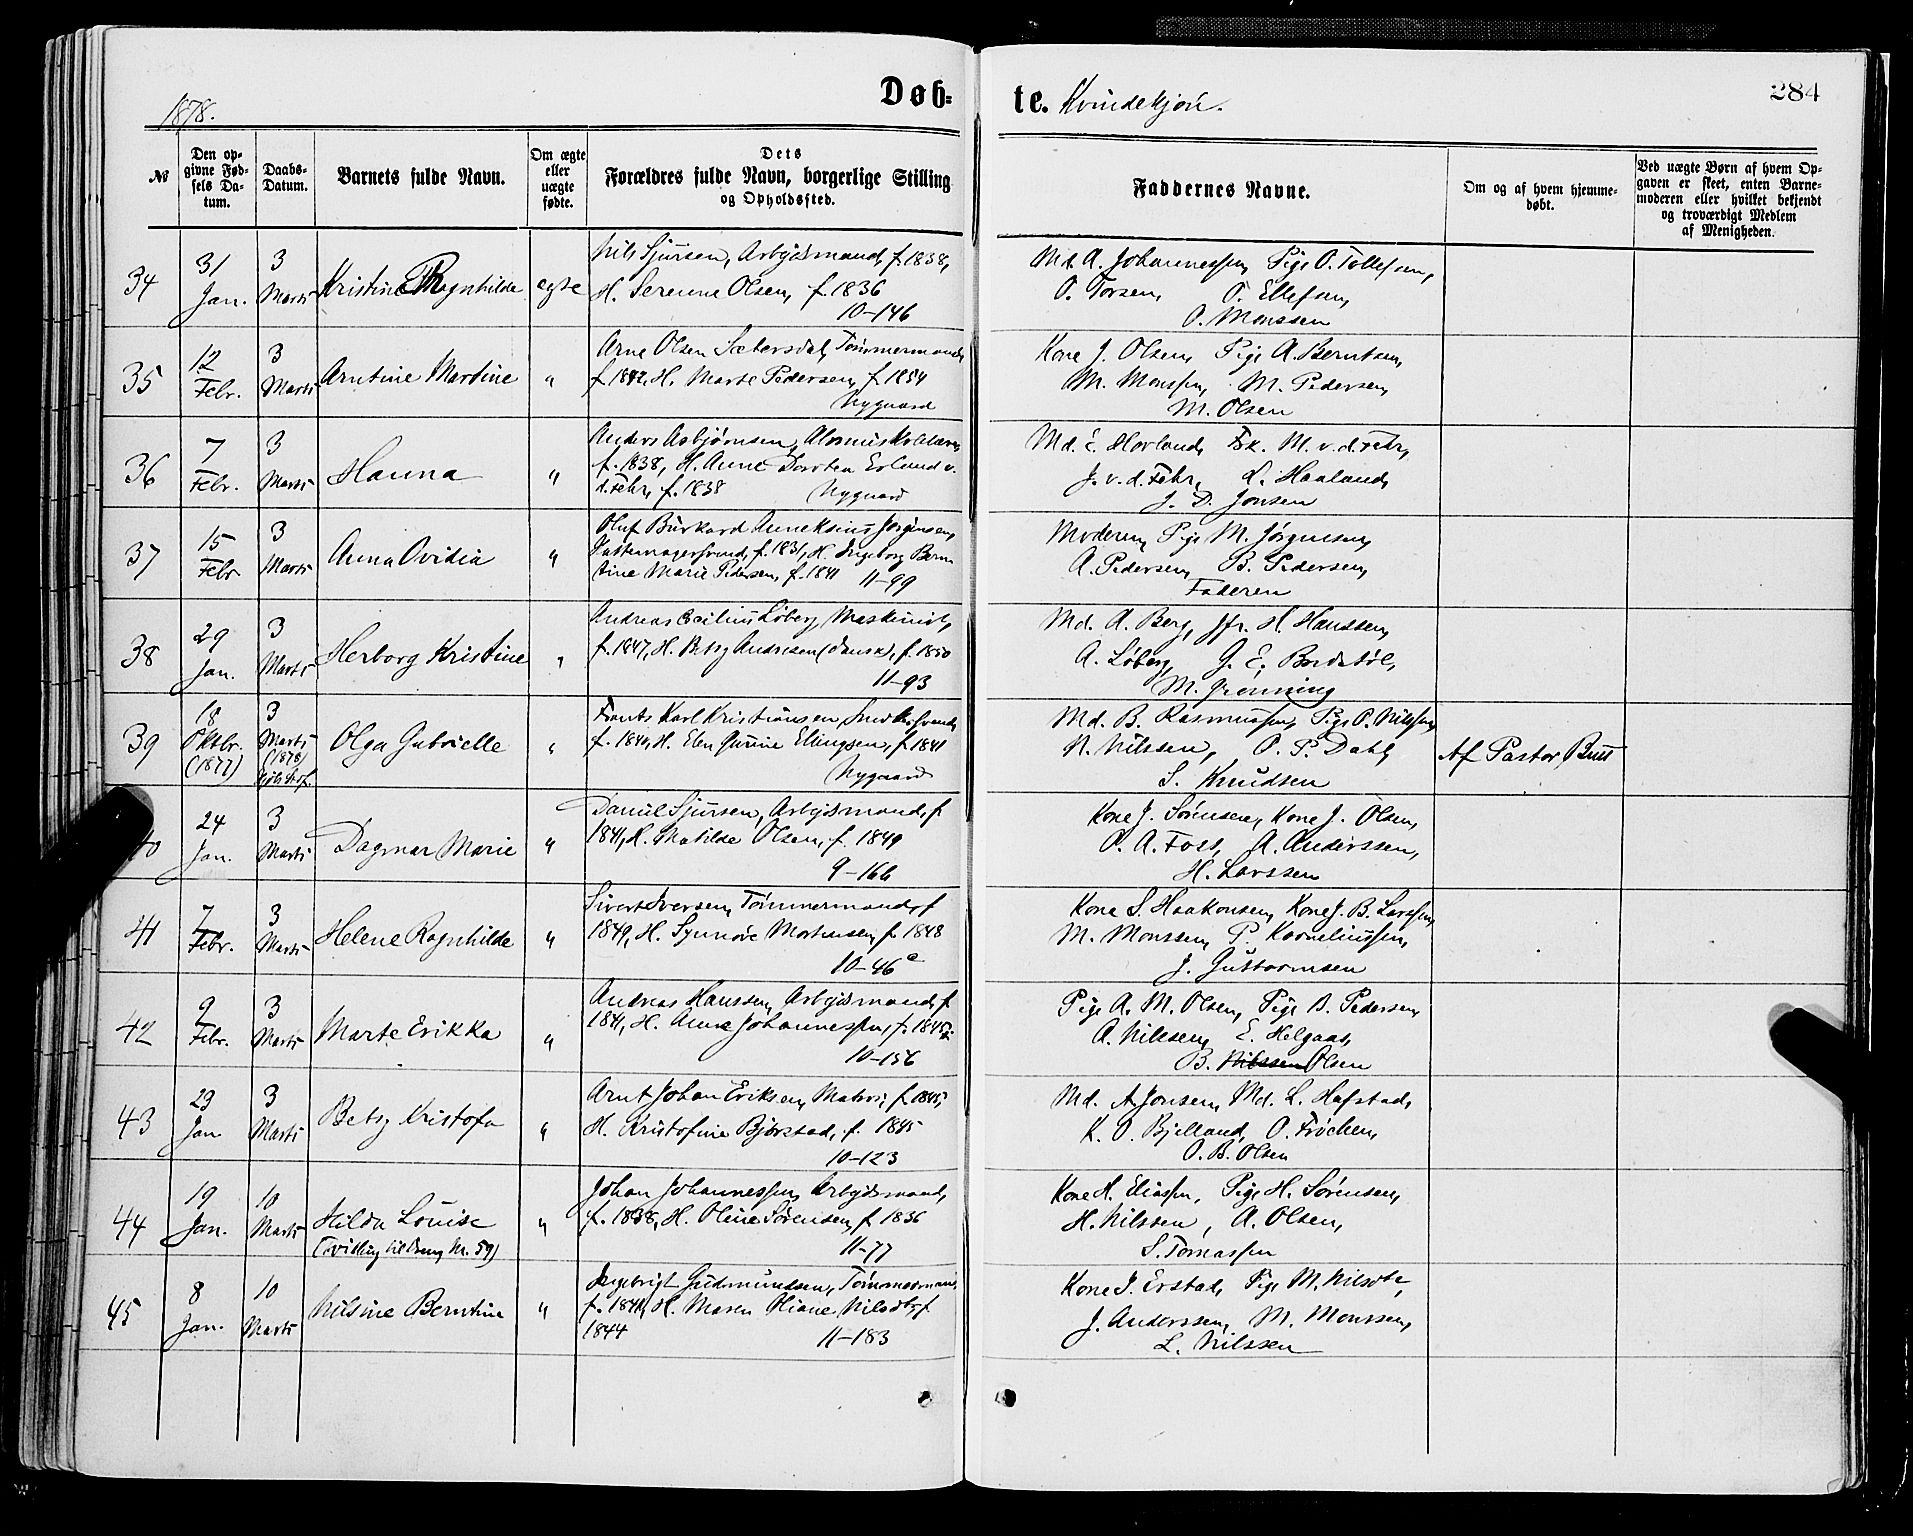 1878.
Døb=
te. Kvindekjøn.
284
№
Den op-
givne Fød-
sels Da-
tum.
Daabs-
Datum.
Barnets fulde Navn.
Om ægte
eller
uægte
fødte.
Dets
Forældres fulde Navn, borgerlige Stilling
og Opholdssted.
Faddernes Navne.
Om og af hvem hjemme-
døbt.
Ved uægte Børn af hvem Op-
gaven er skeet, enten Barne-
moderen eller hvilket bekjendt
og troværdigt Medlem
af Menigheden.
34
31
Jan.
3
Marts
Kristine Ragnhilde
egte
Nils Sjursen, Arbejdsmand, f. 1838,
H. Serenne Olsen, f. 1836
10-146
Md. A. Johannessen, Pige O. Tollefsen,
O. Torsen, T. Ellefsen,
O. Monssen
35
12
Febr.
3
Marts
Arntine Martine
"
Arne Olsen Sætersdal, Tømmermand,
f. 1842, H. Marte Pedersen, f. 1854
Nygaard
Kone J. Olsen, Pige A. Berntsen,
M. Monssen, M. Pedersen,
M. Olsen
36
7
Febr.
3
Marts
Hanna
"
Anders Asbjørnsen,
f. 1838, H. Anne Dortea Erlund v.
d. Fehr, f. 1838
Nygaard
Md. E. Horland, Frk. M. v. d. Fehr,
J. v. d. Fehr, L. Haaland,
J. D. Jonsen
37
15
Febr
3
Marts
Anna Ovidia
"
Oluf Burkard Jørgensen,
f. 1831, H. Ingeborg Bern
tine Marie Pedersen, f. 1841 11-99
Moderen, Pige M. Jørgensen,
A. Pedersen, B. Pedersen,
Faderen
38
29
Jan.
3
Marts
Herborg Kristine
"
Andreas Cecilius Løberg, Maskinist,
f. 1847, H. Betsy Andresen (dansk), f. 1850
11-93
Md. A. Berg, Jfr. H. Hanssen,
A. Løberg, G. E. Bordstøl,
M. Grønning
39
18
Oktbr.
(1877)
3
Marts
(1878)
Olga Gabrielle
"
Frants Karl Kristiansen, Snedkersvend,
f. 1846, H. Elen Gurine Ellingsen, f. 1841
Nygaard
Md. B. Rasmussen, Pige P. Nilssen,
N. Nilssen, O. P. Dahl,
S. Knudsen
Af Pastor Bull
24
Jan.
3
Marts
Dagmar Marie
"
Daniel Sjursen, Arbejdsmand, f.
1841, H. Matilde Olsen, f. 1849
9-166
Kone J. Sørensen, Kone J. Olsen,
O. A. Foss, A. Anderssen,
H. Larssen
41
7
Febr.
3
Marts
Helene Ragnhilde
"
Sivert Iversen, Tømmermand, f
1849, H. Synnøve Mortensen, f. 1848
10-46a
Kone S. Haakonsen, Kone J. B. Larssen,
M. Monssen, P. Korneliussen,
J. Gustavnsen
42
9
Febr.
3
Marts
Marte Erikka
"
Andreas Hanssen, Arbejdsmand, f.
1841, H. Anne Johannessen, f. 1845
10-156
Pige A. M. Olsen, Pige B. Pedersen,
A. Nilssen, E. Helgaas,
B. Nilssen Olsen
43
23
Jan
3
Marts
Betsy Kristofa
"
Arnt Johan Eriksen, Matros, f. 1845,
H. Kristofine Bjørstad, f. 1845
10-123
Md. A Jonsen, Md. L. Hafstad,
K. O. Bjelland, O. Frøchen,
O. B. Olsen
44
19
Jan.
10
Marts
Hilda Louise
(Tvilling til Dreng Nr. 59)
"
Johan Johannessen, Arbejdsmand,
f. 1838, H. Oline Sørensen, f. 1836
11-77
Kone H. Eliassen, Pige H. Sørensen,
H. Nilssen, A. Olsen,
S. Tomassen
45
8
Jan.
10
Marts
Nilsine Berntine
"
Ingebrigt Gudmundsen, Tømmermand,
f. 1841, H. Maren Oliane Nilsdtr, f.
1844
11-183
Kone J. Erstad, Pige M. Nilsdtr,
J. Anderssen, M. Monssen,
L. Nilssen